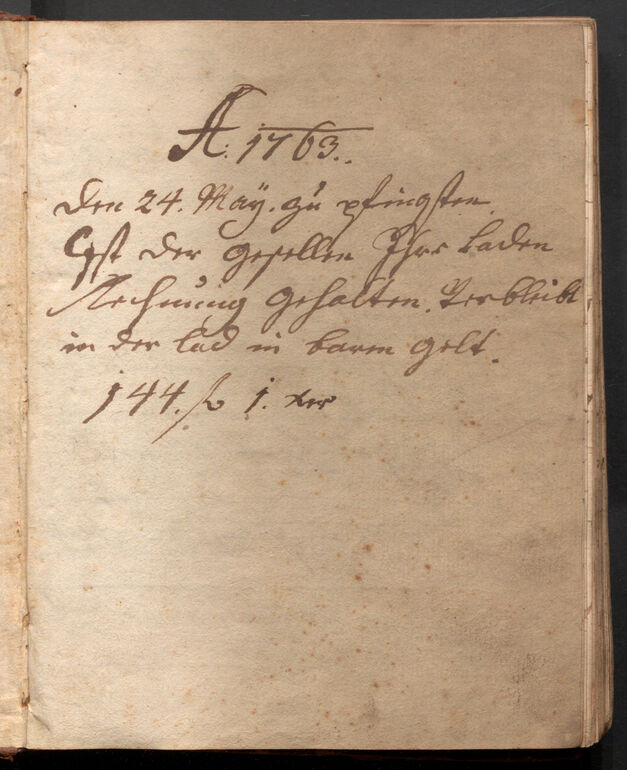 A: 1763.
Den 24. Maÿ. zu pfingsten
Ist der gesellen Ihre Laden
Rechnung gehalten. Verbleibt
in der Lad in barem gelt.
144. f 1. xer